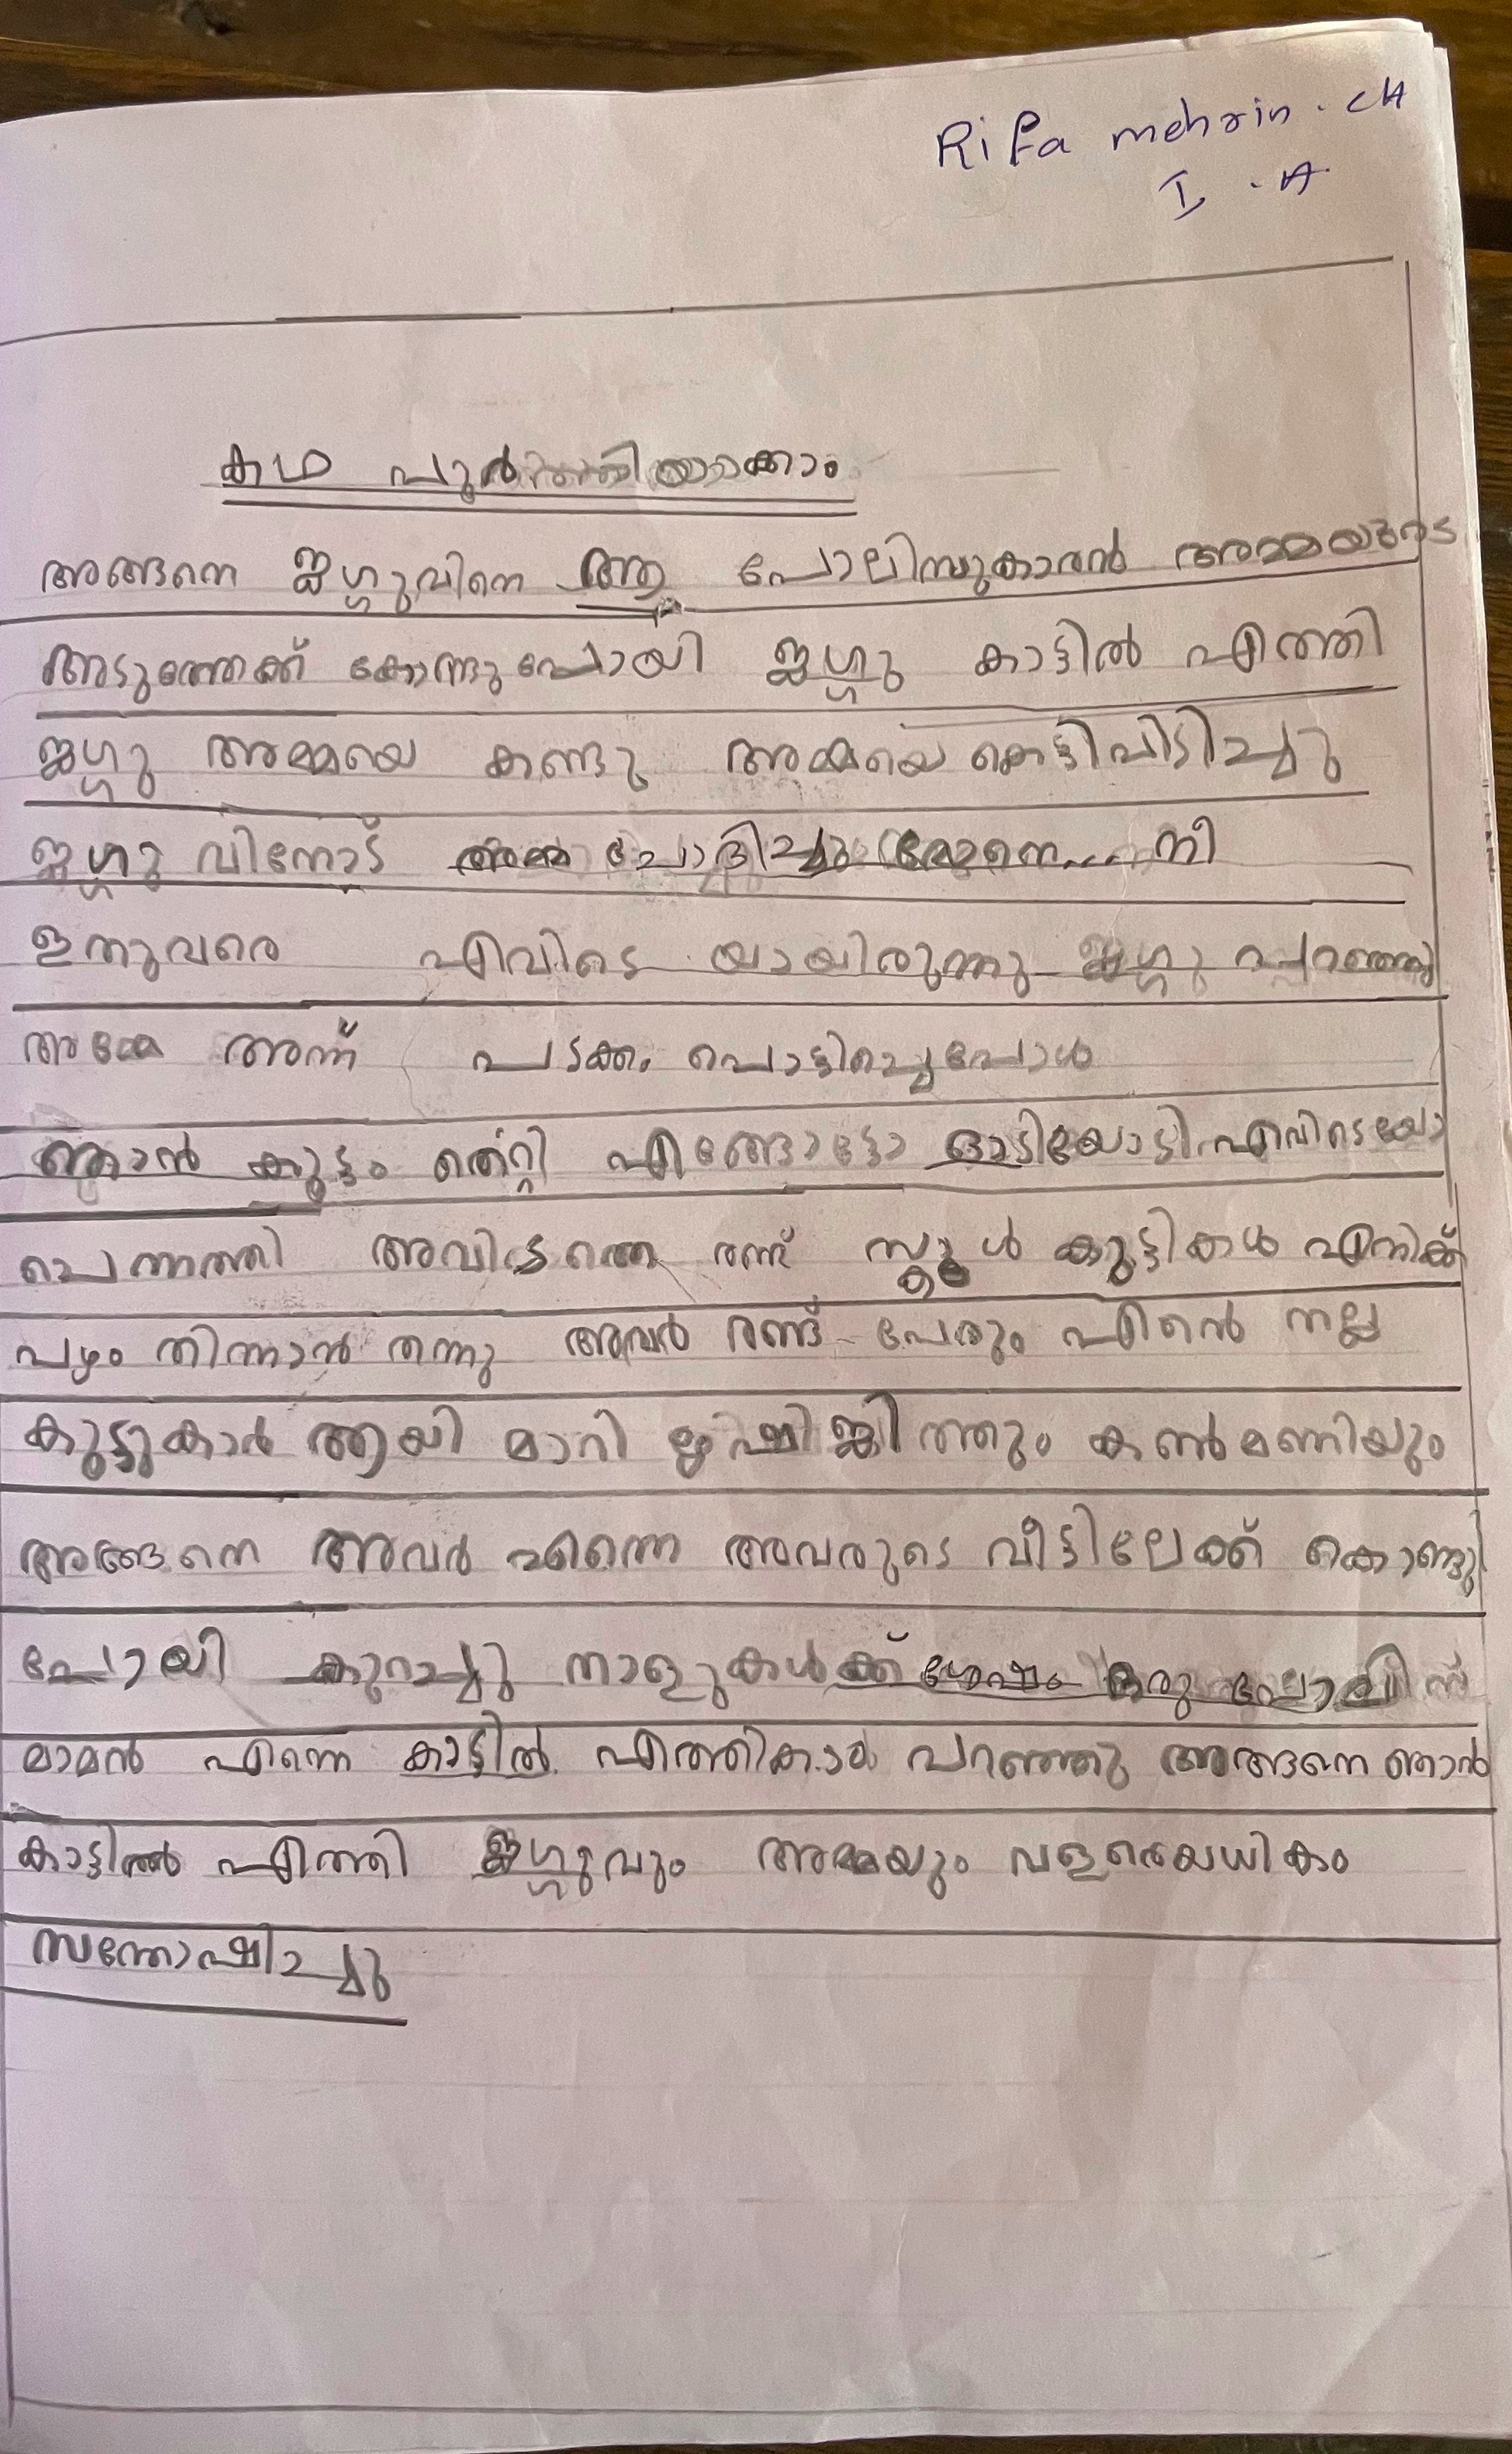 Rifa mehrin. CH
I. A
കഥ പൂർത്തിയാക്കാം
അങ്ങനെ ജഗ്ഗുവിനെ ആ പോലിസുകാരൻ അമ്മയുടെ
അടുത്തേക്ക് കോന്ദുപോയി ജഗ്ഗു കാട്ടിൽ എത്തി
ജഗ്ഗു അമ്മയെ കണ്ടു അമ്മയെ കെട്ടിപിടിച്ചു
ജഗ്ഗു വിനോട് അമ്മ ചോദിച്ചു മോനെ.... നീ
ഇതുവരെ എവിടെ യായിരുന്നു ജഗ്ഗു പറഞ്ഞു
അമ്മേ അന്ന് പടക്കം പൊട്ടിച്ചെപോൾ
ഞാൻ കൂട്ടം തെറ്റി എങ്ങോട്ടോ ഓടിയോടി എവിടെയോ
ചെന്നത്തി അവിടത്തെ രണ്ട് സ്കൂൾ കുട്ടികൾ എനിക്ക്
പഴം തിന്നാൻ തന്നു അവർ രണ്ട് പേരും എൻെ നല്ല
കുട്ടുകാർ ആയി മാറി കൺമണിയും
അങ്ങനെ അവർ എന്നെ അവരുടെ വീട്ടിലേക്ക് കൊണ്ടു
പോയി കുറച്ചു നാളുകൾക്ക് ശേഷം ഒരു പോലിസ്
മാമൻ എന്നെ കാട്ടിൽ എത്തികാൻ പറഞ്ഞു അങ്ങനെ ഞാൻ
കാട്ടിൽ എത്തി ജഗ്ഗുവും അമ്മയും വളരെയധികം
സന്തോഷിച്ചു